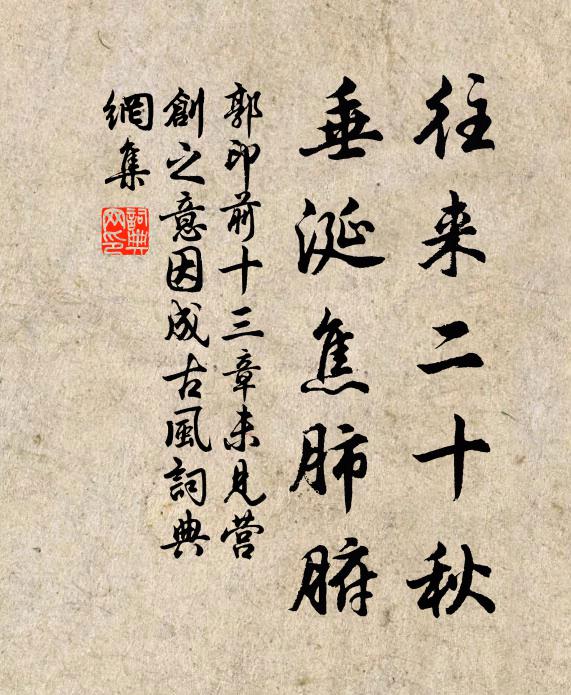 往来二十秋
垂涎焦肺腑
郭印前十三章未見营
創之意因成古風詞典
網集
詞典
网印